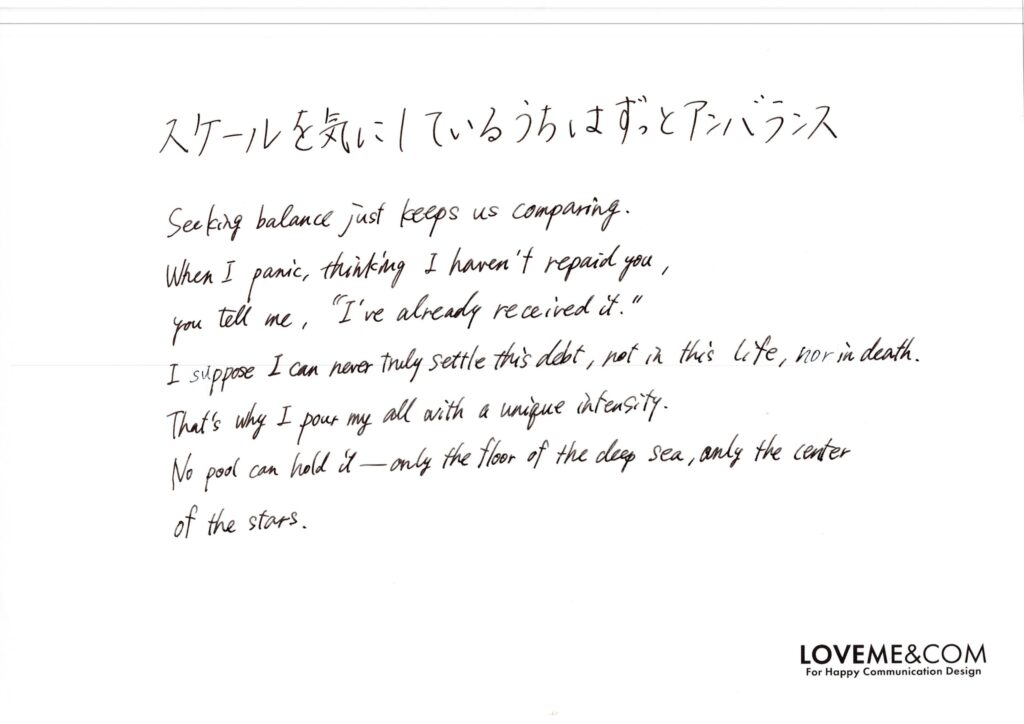 スケールを気にしているうちはずっとアンバランス
Seeking balance just keeps us comparing.
When I panic, thinking I haven't repaid you,
you tell me, "I've already received it."
I suppose I can never truly settle this debt, not in this life, nor in death.
That's why I pour my all with a unique intensity.
No pool can hold it—only the floor of the deep sea, only the center
of the stars.
LOVEME&COM
For Happy Communication Design